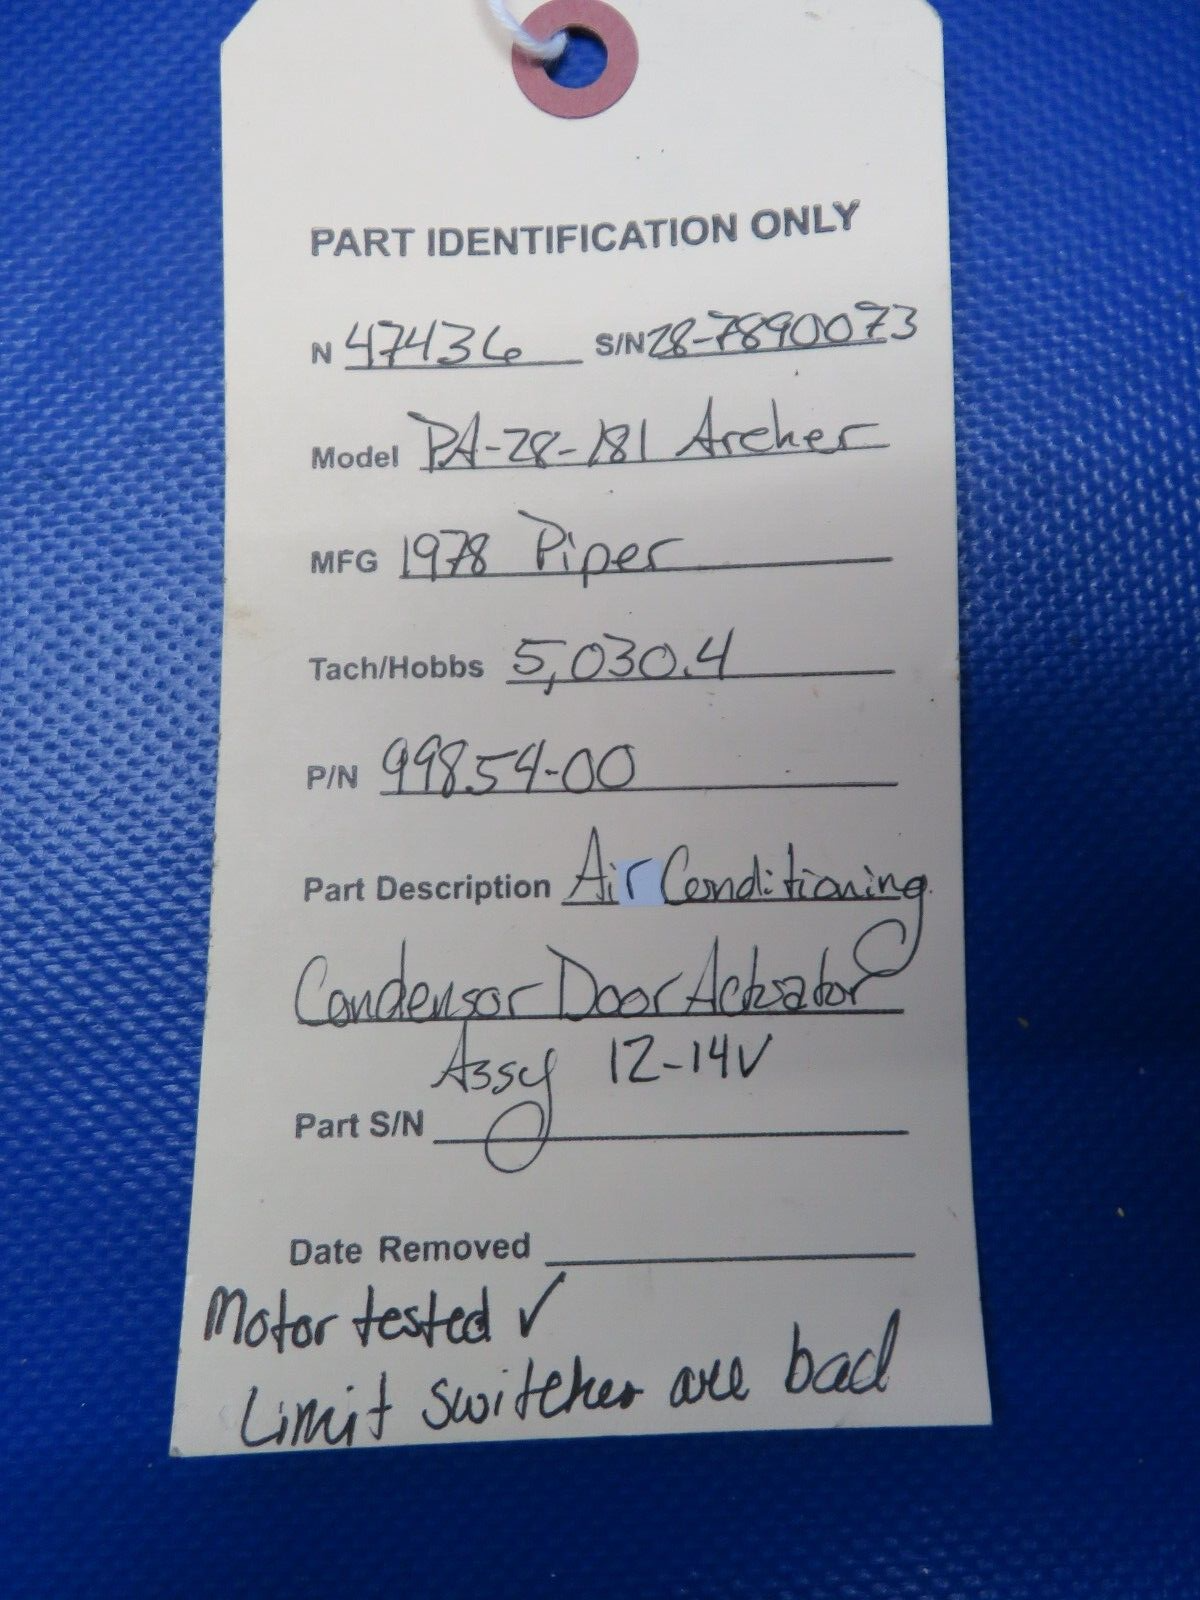 PART IDENTIFICATION ONLY
N 47436 S/N 28-7890073
Model PA-28-181 Archer
MFG 1978 Piper
Tach/Hobbs 5,030.4
P/N 99854-00
Part Description Air Conditioning
Condensor Door Actuator
Assy 12-14V
Part S/N
Date Removed
Motor tested ✓
Limit switches are bad